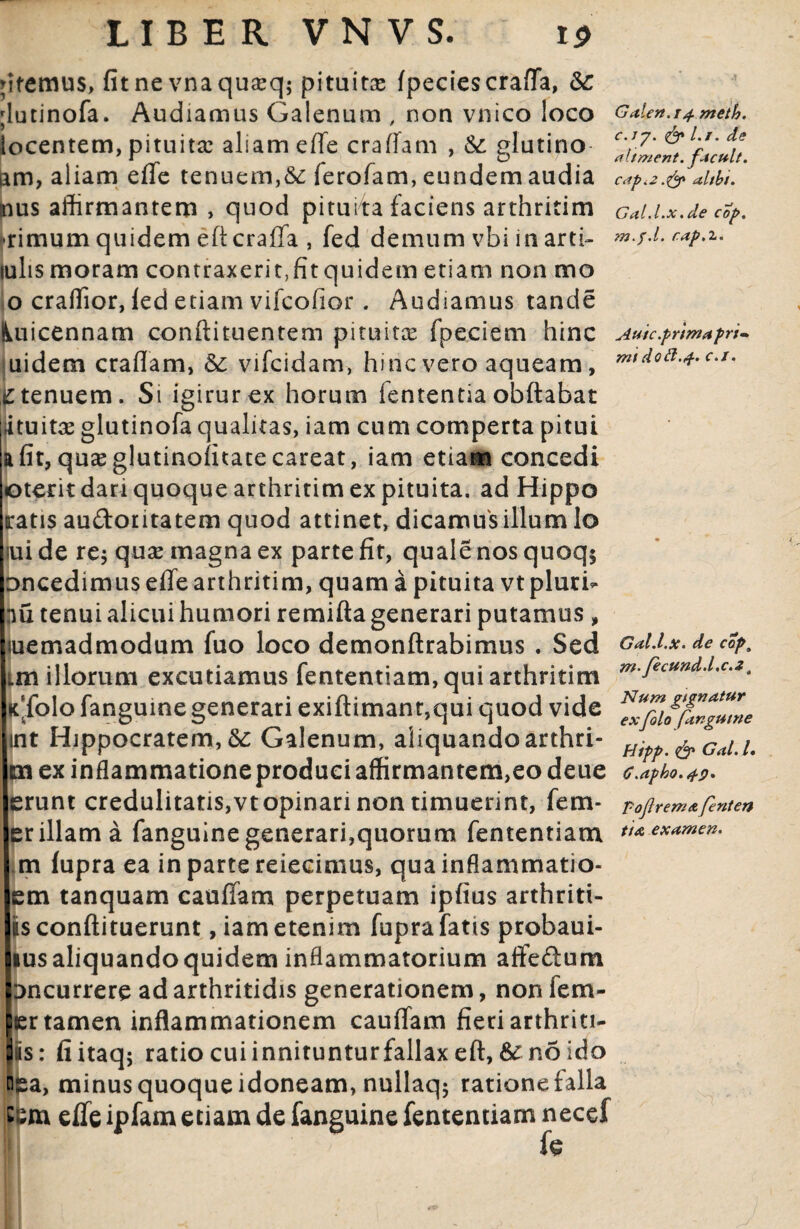 LIBER VNVS. 19
ritemus, fit ne vna quæq; pituitæ ſpecies craſſa, &
lutinoſa. Audiamus Galenum, non vnico loco
docentem, pituitæ aliam eſſe craſſam, & glutino
am, aliam eſſe tenuem, & ſeroſam, eundem audia
mus affirmantem, quod pituita faciens arthritim
primum quidem eſt craſſa, ſed demum vbi in arti-
ulis moram contraxerit, fit quidem etiam non mo
o craſſior, ſed etiam viſcoſior. Audiamus tandē
Auicennam conſtituentem pituitæ ſpeciem hinc
uidem craſſam, & viſcidam, hinc vero aqueam,
& tenuem. Si igirur ex horum ſententia obſtabat
ituitæ glutinoſa qualitas, iam cum comperta pitui
a ſit, quæ glutinoſitate careat, iam etiam concedi
oterit dari quoque arthritim ex pituita. ad Hippo
ratis auctoritatem quod attinet, dicamus illum lo
ui de re; quæ magna ex parte fit, qualē nos quoq;
oncedimus eſſe arthritim, quam à pituita vt pluri-
mū tenui alicui humori remiſta generari putamus,
uemadmodum ſuo loco demonſtrabimus. Sed
am illorum excutiamus ſententiam, qui arthritim
ex ſolo ſanguine generari exiſtimant, qui quod vide
int Hippocratem, & Galenum, aliquando arthri-
m ex inflammatione produci affirmantem, eo deue
erunt credulitatis, vt opinari non timuerint, ſem-
er illam à ſanguine generari, quorum ſententiam
m ſupra ea in parte reiecimus, qua inflammatio-
em tanquam cauſſam perpetuam ipſius arthriti-
is conſtituerunt, iam etenim ſupra ſatis probaui-
us aliquando quidem inflammatorium affectum
oncurrere ad arthritidis generationem, non ſem-
er tamen inflammationem cauſſam fieri arthriti-
is: ſi itaq; ratio cui innituntur fallax eſt, & nō ido
ea, minus quoque idoneam, nullaq; ratione falla
em eſſe ipſam etiam de ſanguine ſententiam neceſ
ſe
Galen. 14 meth.
c. 17. & l. 1. de
aliment. facult.
cap. 2. & alibi.
Gal. l. x. de cōp.
m. ſ. l. cap. 2.
Auic. prima pri-
mi doct. 4. c. 1.
Gal. l. x. de cōp.
m. ſecund. l. c. 2.
Num gignatur
ex ſolo ſanguine
Hipp. & Gal. l.
6. apho. 49.
Poſtremæ ſenten
tiæ examen.